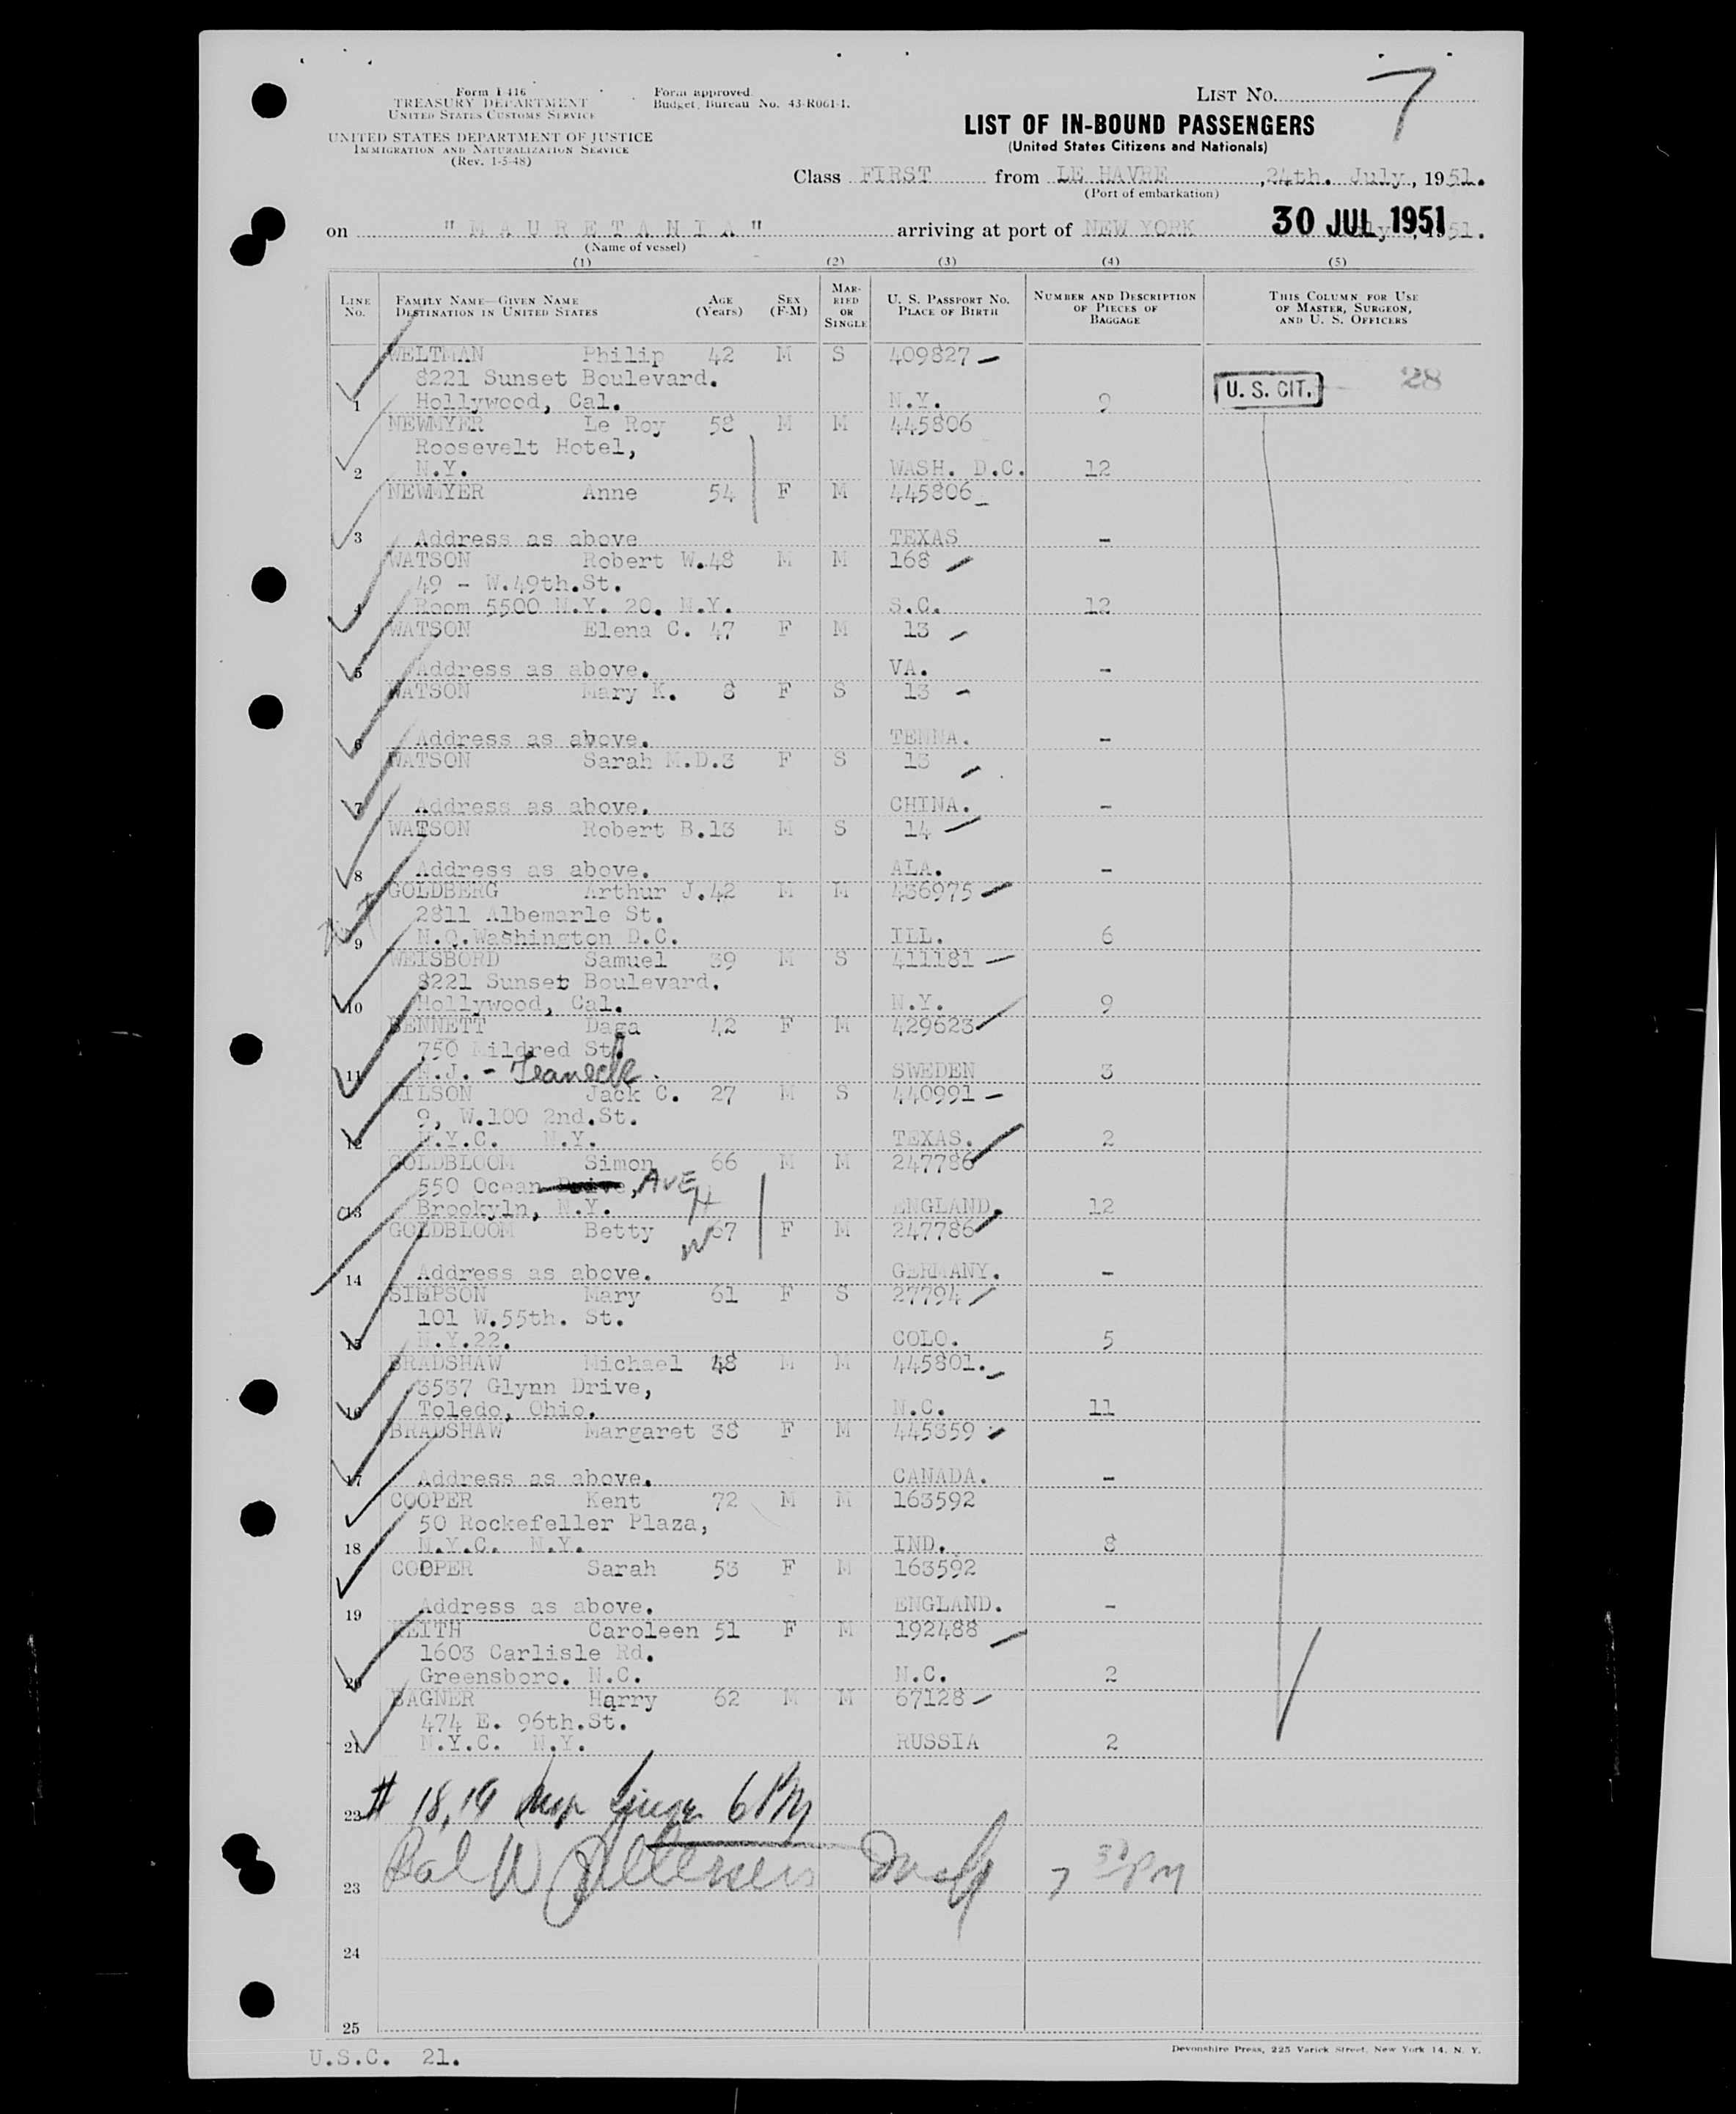 Form I-416
TREASURY DEPARTMENT
UNITED STATES CUSTOMS SERVICE
UNITED STATES DEPARTMENT OF JUSTICE
IMMIGRATION AND NATURALIZATION SERVICE
(Rev. 1-5-48)
Form approved.
Budget Bureau No. 43-R061-1.
LIST No. 7
LIST OF IN-BOUND PASSENGERS
(United States Citizens and Nationals)
Class FIRST from LE HAVRE, 24th. July, 1951.
(Port of embarkation)
on "MAURETANIA" arriving at port of NEW YORK 30 JUL 1951
(Name of vessel)
(1) (2) (3) (4) (5)
LINE No. FAMILY NAME—GIVEN NAME DESTINATION IN UNITED STATES AGE (Years) SEX (F-M) MARRIED OR SINGLE U. S. PASSPORT NO. PLACE OF BIRTH NUMBER AND DESCRIPTION OF PIECES OF BAGGAGE THIS COLUMN FOR USE OF MASTER, SURGEON, AND U. S. OFFICERS
WELTMAN Philip 42 M S 409827
8221 Sunset Boulevard. U. S. CIT. 28
1 Hollywood, Cal. N.Y. 9
NEWMYER Le Roy 58 M M 445806
Roosevelt Hotel,
2 N.Y. WASH. D.C. 12
NEWMYER Anne 54 F M 445806
3 Address as above TEXAS -
WATSON Robert W. 48 M M 168
49 - W.49th.St.
4 Room 5500 N.Y. 20. N.Y. S.C. 12
WATSON Elena C. 47 F M 13
5 Address as above. VA. -
WATSON Mary K. 8 F S 13
6 Address as above. TENNA. -
WATSON Sarah M.D. 3 F S 13
7 Address as above. CHINA. -
WATSON Robert B. 13 M S 14
8 Address as above. ALA. -
GOLDBERG Arthur J. 42 M M 436975
2811 Albemarle St.
9 N.O.Washington D.C. ILL. 6
WEISBORD Samuel 39 M S 411181
8221 Sunset Boulevard.
10 Hollywood, Cal. N.Y. 9
BENNETT Daga 42 F M 429623
750 Mildred St.
11 N.J. - Teaneck. SWEDEN 3
WILSON Jack C. 27 M S 440991
9, W.100 2nd.St.
12 N.Y.C. N.Y. TEXAS. 2
GOLDBLOOM Simon 66 M M 247786
550 Ocean Drive, AVE
13 Brookyln, N.Y. H ENGLAND. 12
GOLDBLOOM Betty W 67 F M 247786
14 Address as above. GERMANY. -
SIMPSON Mary 61 F S 27794
101 W.55th. St.
15 N.Y.22. COLO. 5
BRADSHAW Michael 48 M M 445801.
3537 Glynn Drive,
16 Toledo, Ohio. N.C. 11
BRADSHAW Margaret 38 F M 445359
17 Address as above. CANADA. -
COOPER Kent 72 M M 163592
50 Rockefeller Plaza,
18 N.Y.C. N.Y. IND. 8
COOPER Sarah 53 F M 163592
19 Address as above. ENGLAND. -
KEITH Caroleen 51 F M 192488
1603 Carlisle Rd.
20 Greensboro. N.C. N.C. 2
BAGNER Harry 62 M M 67128
474 E. 96th.St.
21 N.Y.C. N.Y. RUSSIA 2
22 # 18,19 6 PM
23 7 30 PM
24
25
U.S.C. 21.
Devonshire Press, 225 Varick Street, New York 14, N. Y.